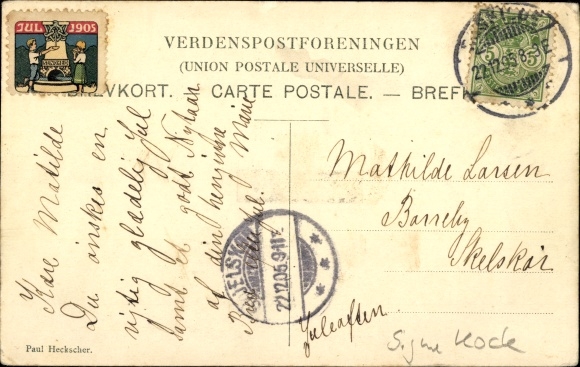 JUL 1905
VERDENSPOSTFORENINGEN
(UNION POSTALE UNIVERSELLE)
BREVKORT. — CARTE POSTALE. — BREFKORT
Kære Matilde
Du ønskes en
rigtig glædelig Jul
samt et godt Nytaar
af din hengivne
Marie
Jul.
Mathilde Larsen
Borreby
Skelskør
Juleaften
Signe Kock
22.12.05.9-11F
22.12.05.8-9F
5
Paul Heckscher.